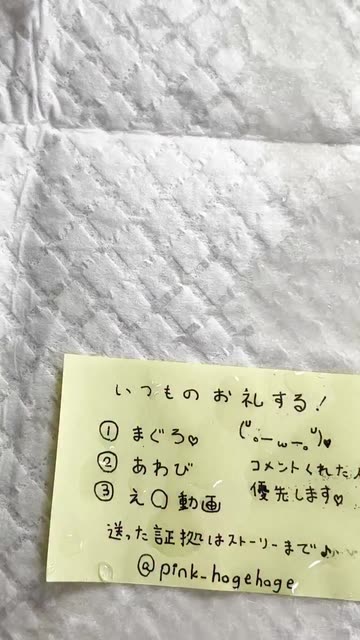 いつものお礼する!
① まぐろ♡ (ᐡ｡- ω -｡ᐡ)♥
② あわび コメントくれた人
③ え〇動画 優先します♡
送った証拠はストーリーまで♪
@pink_hogehage